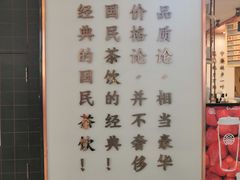 品质论·相当豪华
价格论·并不奢侈
国民茶饮的经典！
经典的国民茶饮！